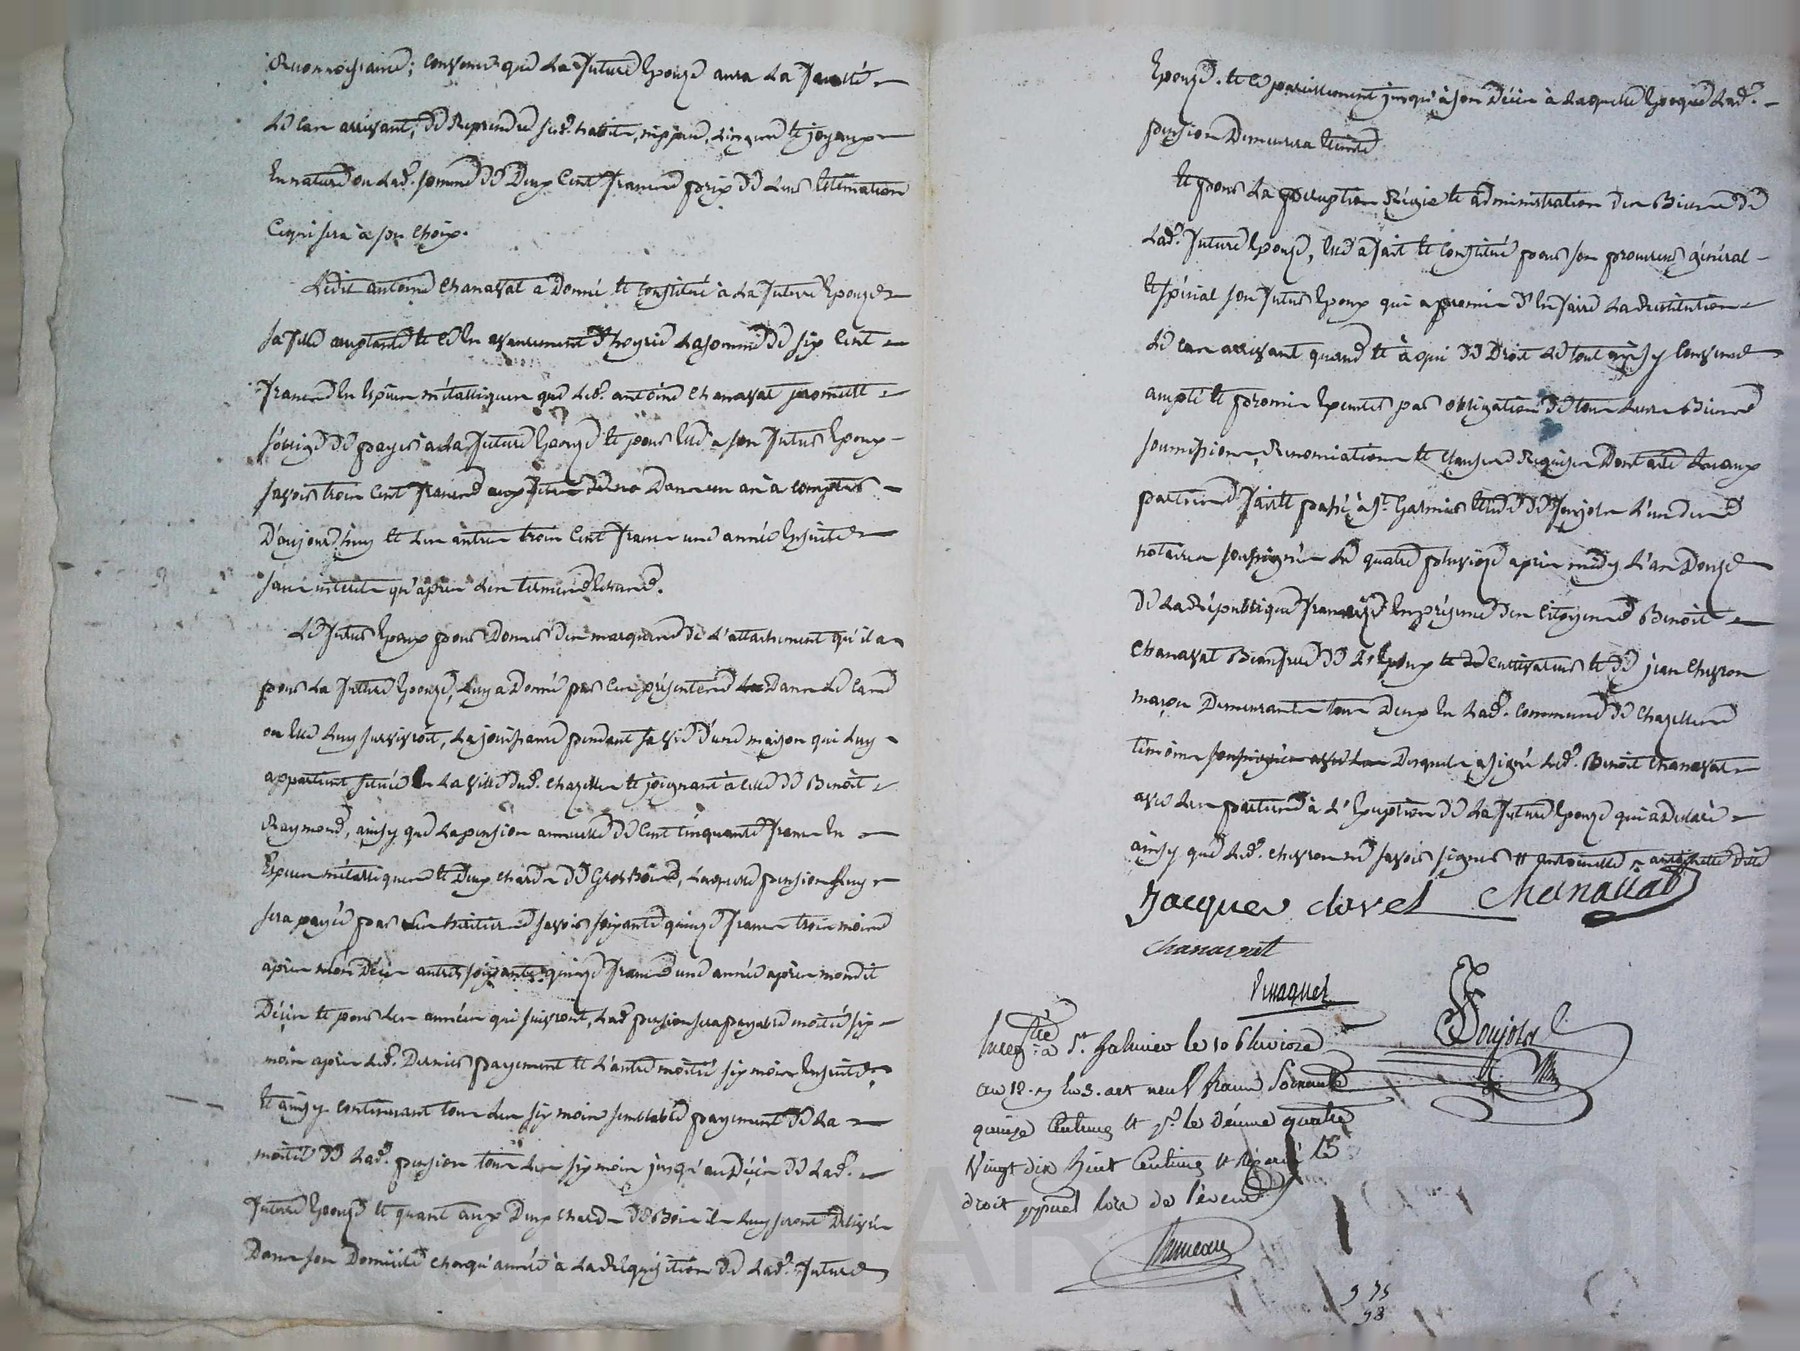 Reconnoissance; convenu que La future Epouze aura La faculté
Le Cas arrivant, de Reprendre ses d. habits, nippes, Linges et joyaux
En nature ou Lad. somme de Deux Cent francs prix de Leur Estimation
Ce qui sera à son choix.
Ledit antoine Chanavat a Donné et Constitué à La future Epouze
sa fille acceptante et en avancement d'hoyrie La somme de six Cent
francs En Espèces métalliques que led. antoine Chanavat promet et
s'oblige de payer à La future Epouze et pour Elle à son futur Epoux
savoir trois Cent francs Dans un an à compter
D'aujourd'huy et Les autres trois Cent francs une année Ensuite
sans interets qu'après Les termes Echus.
Le futur Epoux pour Donner des marques de L'attachement qu'il a
pour La future Epouze, Luy a Donné par Ces présentes Dans Le Cas
ou Elle Luy survivroit, La jouissance pendant sa vie d'une maison qui Luy
appartient située En La ville dud. Chazelles et joignant à Celle de Benoit
Raymond, ainsy que La pension annuelle de Cent Cinquante francs En
Espèces métalliques et Deux chards de Gros Bois, Laquelle pension Luy
sera payée par ses héritiers savoir soixante quinze francs trois mois
après mon Décès autres soixante quinze francs une année après mondit
Décès et pour Les années qui suivront, Lad. pension sera payable moitié six
mois après Led. Dernier payement et L'autre moitié six mois Ensuite,
Et ainsy continuant tous Les six mois semblable payement de La
moitié de Lad. pension tous Les six mois jusqu'au Décès de Lad.
future Epouze et quant aux Deux chards de Bois ils Luy seront Délivrés
Dans son Domicile chaqu'année à La Réquisition de Lad. future
Epouze. et ce pareillement jusqu'à son Décès à Laquelle Epoque Lad.
pension Demeurera Eteinte
Et pour La perception Régie et administration des Biens de
Lad. future Epouze, Elle a fait et Constitué pour son procureur général
Et spécial son futur Epoux qui a promis d'En faire La Restitution
Le Cas arrivant quand et à qui de Droit Le tout ainsy Convenu
accepté et promis Exécuter par obligation de tous Leurs Biens
soumissions, Renonciations et clauses Requises Dont acte Lu aux
parties fait et passé à St. Galmier Etude de foujols L'un des
notaires soussignés Le quatre pluviose après midy L'an Douze
de La République française En présence des Citoyens Benoit
Chanavat Beaufrere de L'Epoux et cultivateur et de jean Cheyron
maçon Demeurants tous Deux En Lad. commune de Chazelles
témoins soussignés avec Les Desquels a signé Led. Benoit Chanavat
avec Les parties à L'Exception de La future Epouze qui a Déclaré
ainsy que Led. cheyron ne savoir signer et antoinette
Jacques clavel Chanavat
Chanavat
foujols
Enreg.tré à St. Galmier le 10 Pluviose
an 12. reçu neuf francs Soixante
quinze Centimes et pr. le Dixieme quatre
Vingt dix huit Centimes
droit lors de l'évenem.t
9 75
98